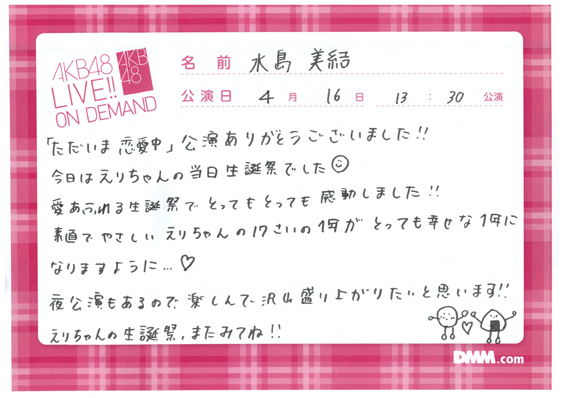 AKB48
LIVE!!
ON DEMAND
AKB
48
名前 水島 美結
公演日 4月 16日 13:30 公演
「ただいま 恋愛中」公演ありがとうございました!!
今日はえりちゃんの当日生誕祭でした
愛あふれる生誕祭で とってもとっても 感動しました!!
素直で やさしい えりちゃんの17さいの1年が とっても幸せな1年に
なりますように…♡
夜公演もあるので 楽しんで 沢山盛り上がりたいと思います!!
えりちゃんの生誕祭、またみてね!!
DMM.com